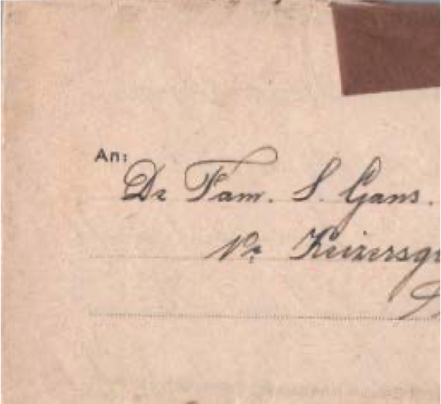 An:
De Fam. S. Gans.
Nr Keizersgr